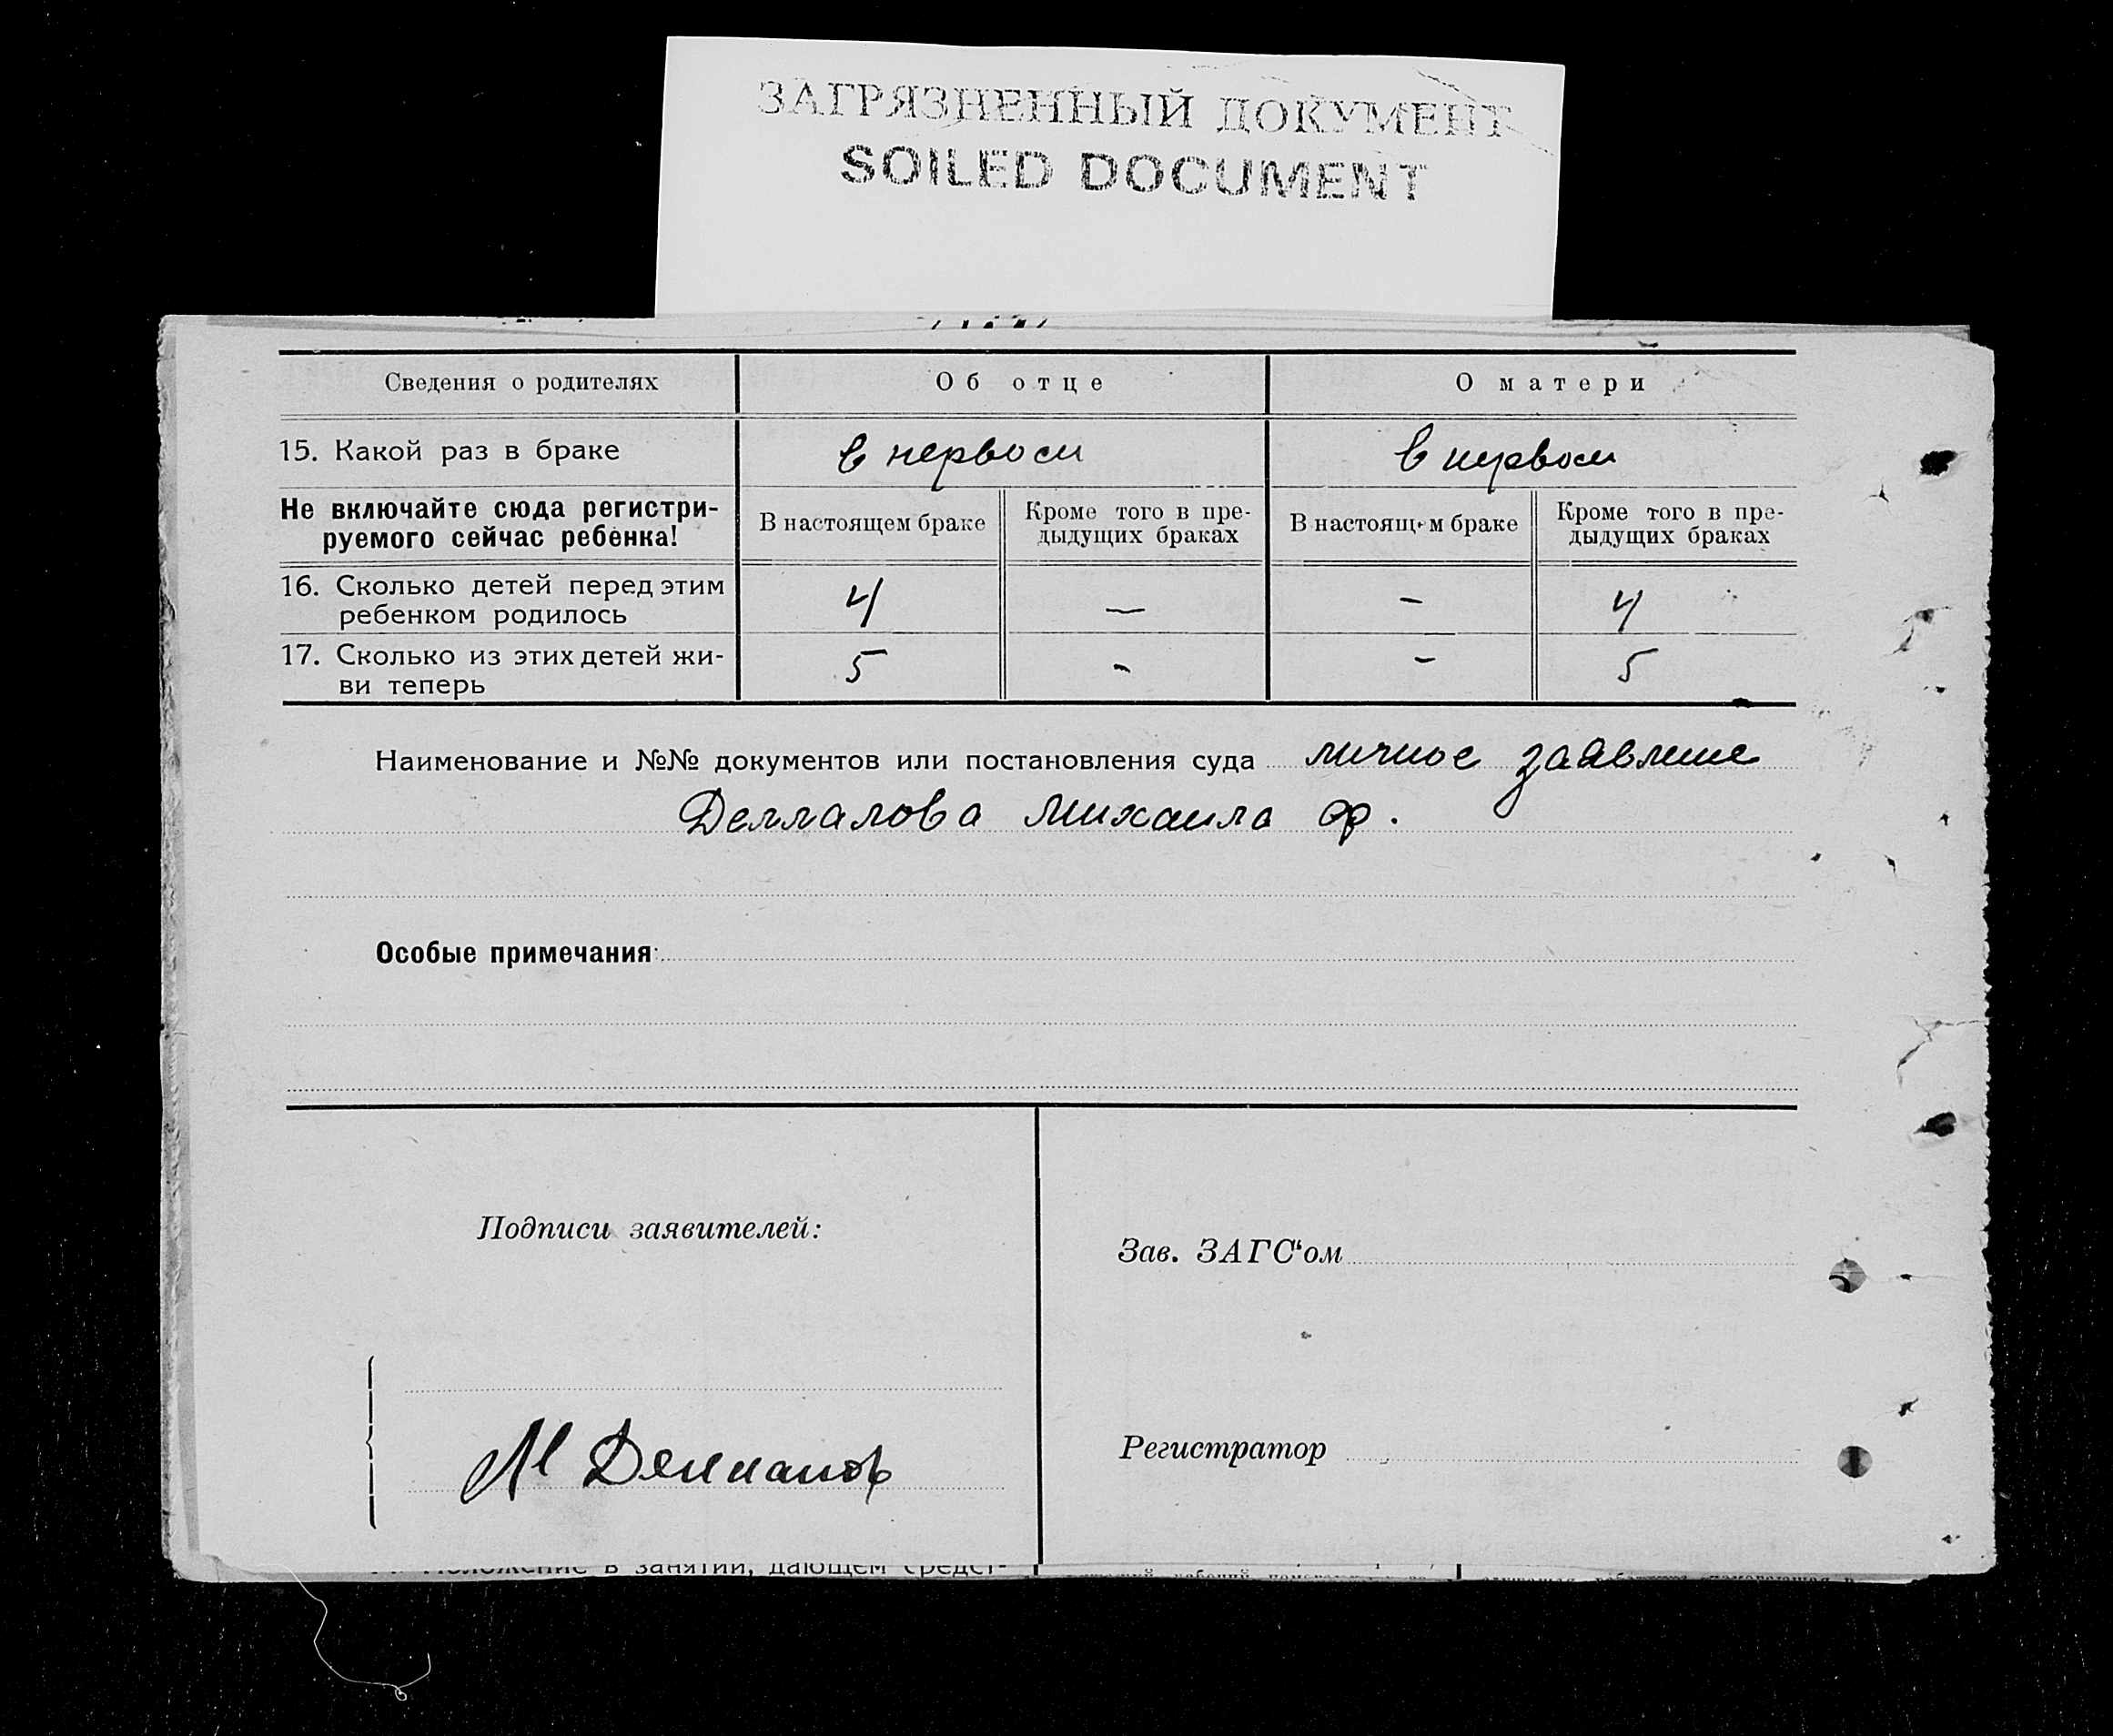 ЗАГРЯЗНЕННЫЙ ДОКУМЕНТ
SOILED DOCUMENT
Сведения о родителях Об отце О матери
15. Какой раз в браке в первом в первом
Не включайте сюда регистри-
руемого сейчас ребенка!
В настоящем браке
Кроме того в пре-
дыдущих браках
В настоящем браке
Кроме того в пре-
дыдущих браках
16. Сколько детей перед этим
ребенком родилось
4 — - 4
17. Сколько из этих детей жи-
ви теперь
5 - - 5
Наименование и №№ документов или постановления суда личное заявление
Деллалова Михаила Ф.
Особые примечания:
Подписи заявителей:
М Деллалов
Зав. ЗАГС“ом
Регистратор
Положение в занятии, дающем средст-